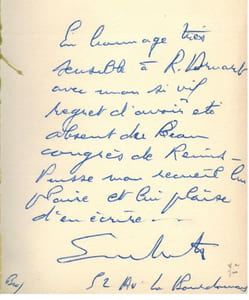 En hommage très
sensible à R.
avec mon si vif
regret d'avoir été
absent du Beau
congrès de Reims -
Puisse mon recueil lui
plaire et lui plaise
d'en écrire -
52 Av. La Bourdonnais